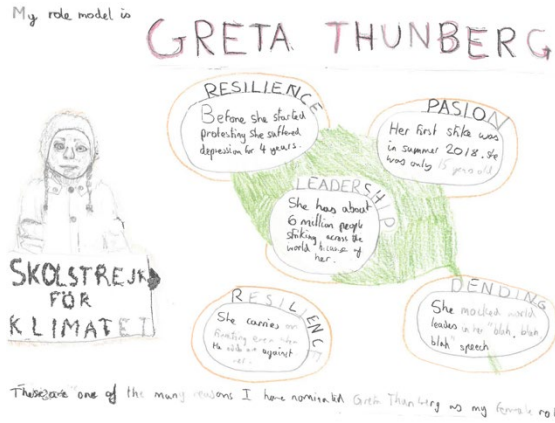 My role model is
GRETA THUNBERG
RESILIENCE
Before she started
protesting she suffered
depression for 4 years.
PASION
Her first stike was
in summer 2018. She
was only 15 years old
LEADERSHIP
She has about
6 million people
striking across the
world because of
her.
SKOLSTREJK
FÖR
KLIMATET
RESILIENCE
She carries on
even when
the odds are against
her.
DENDING
She mocked world
leaders in her "blah, blah
blah" speech
These are one of the many reasons I have nominated Greta Thunberg as my female rol